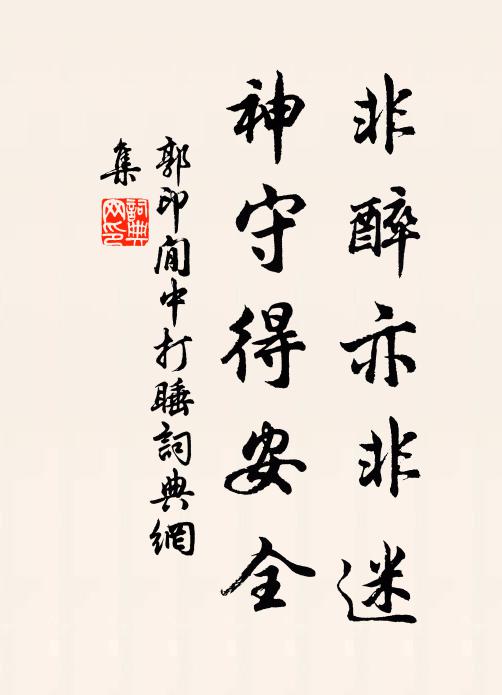 非醉亦非迷
神守得安全
郭印閒中打睡詞典網
集
詞典網印